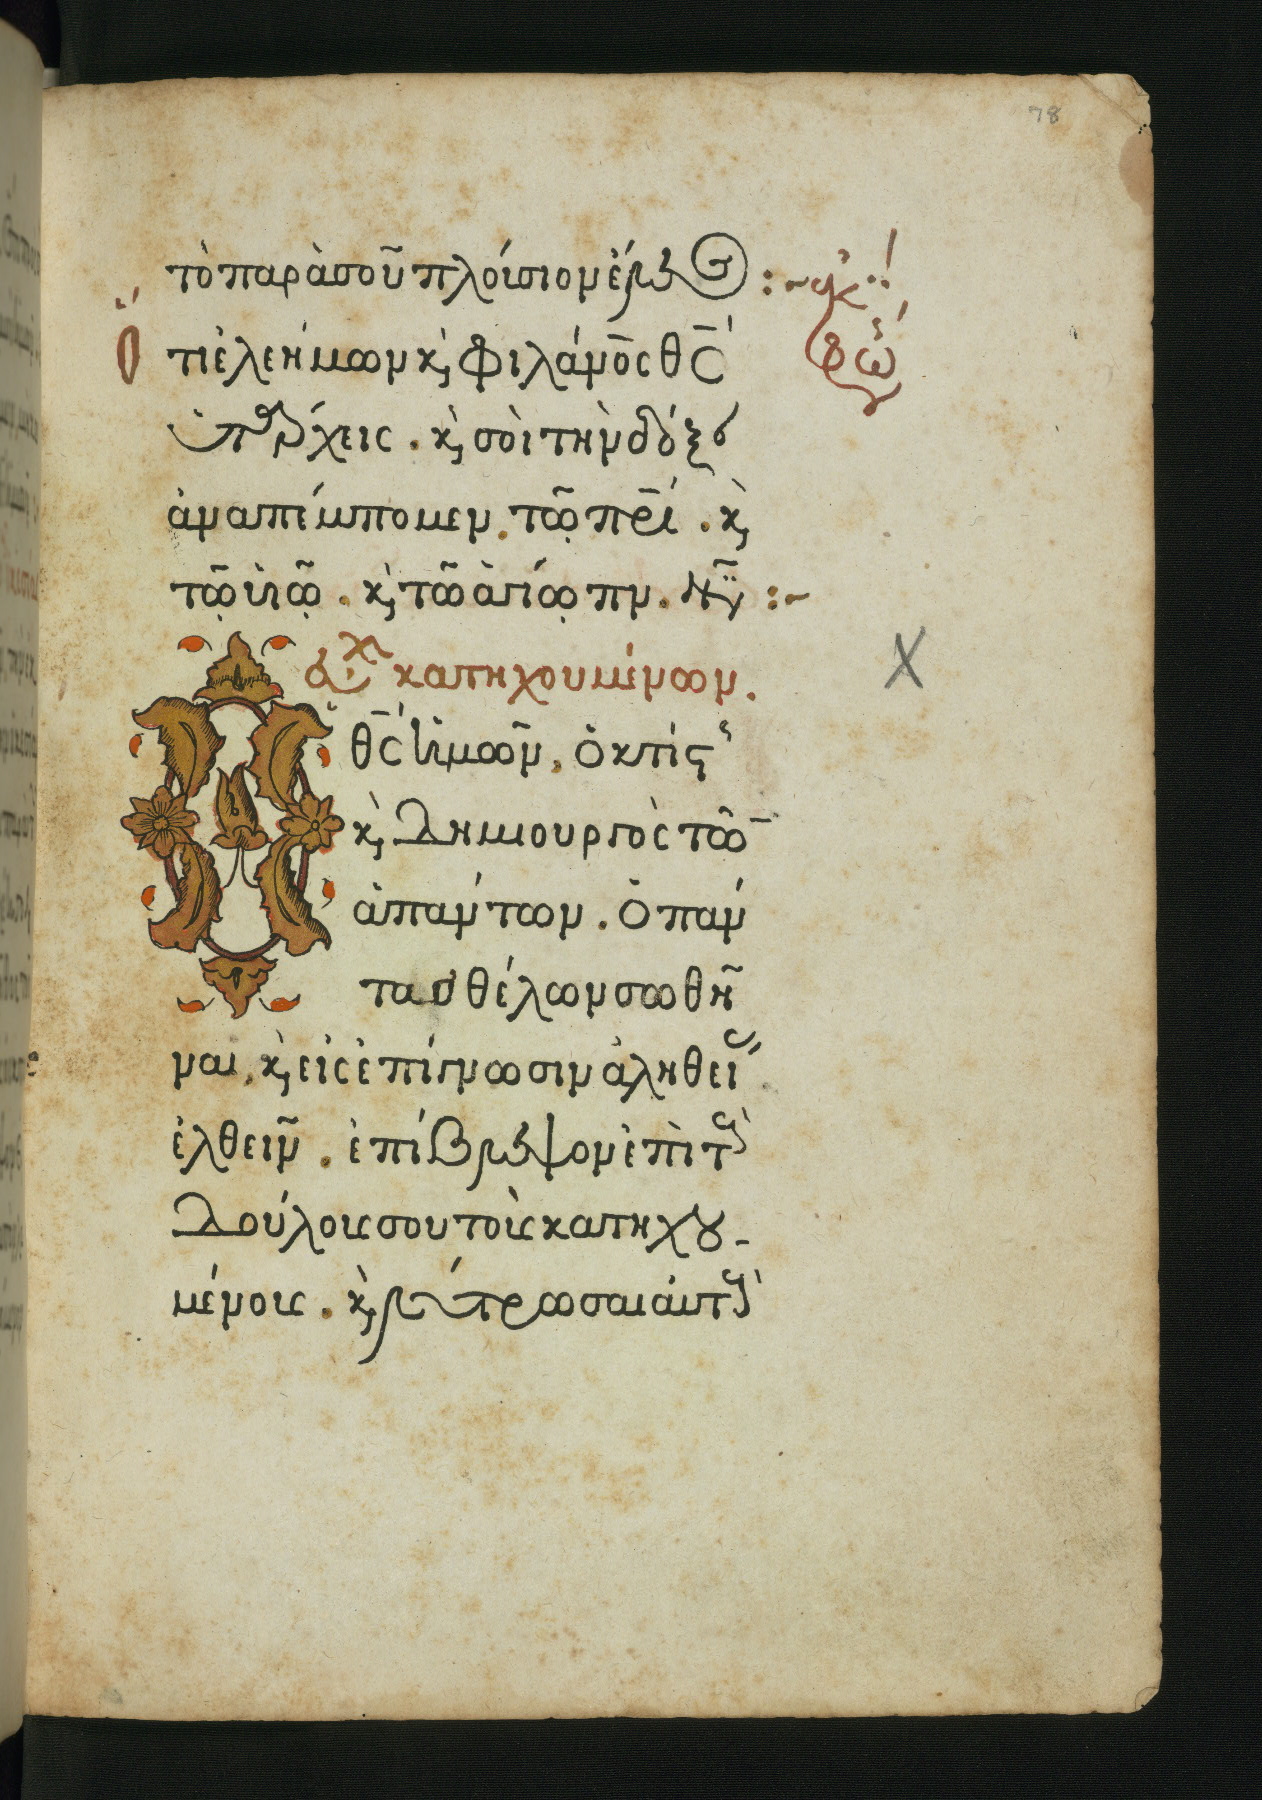 78
τὸ παρὰ σοῦ πλούσιον ἔλεος :~
Ὅτι ἐλεήμων κ̀ φιλάνο̅ς θ̅ς
ὑπάρχεις . κ̀ σοὶ τὴν δόξαν
ἀναπέμπομεν . τῶ π̅ρὶ . κ̀
τῶ υἱῶ . κ̀ τῶ ἁγίω πν . νῦν :~
εὐχὴ κατηχουμένων .
Ὁ θ̅ς ἡμῶν , ὁ κτίστης
κ̀ δημιουργὸς τῶν
ἁπάντων . ὁ πάν
τας θέλων σωθῆ
ναι , κ̀ εἰς ἐπίγνωσιν ἀληθείας
ἐλθεῖν . ἐπίβλεψον ἐπὶ τοὺς
δούλους σου τοὺς κατηχου-
μένους . κ̀ λύτρωσαι αὐτοὺς
X